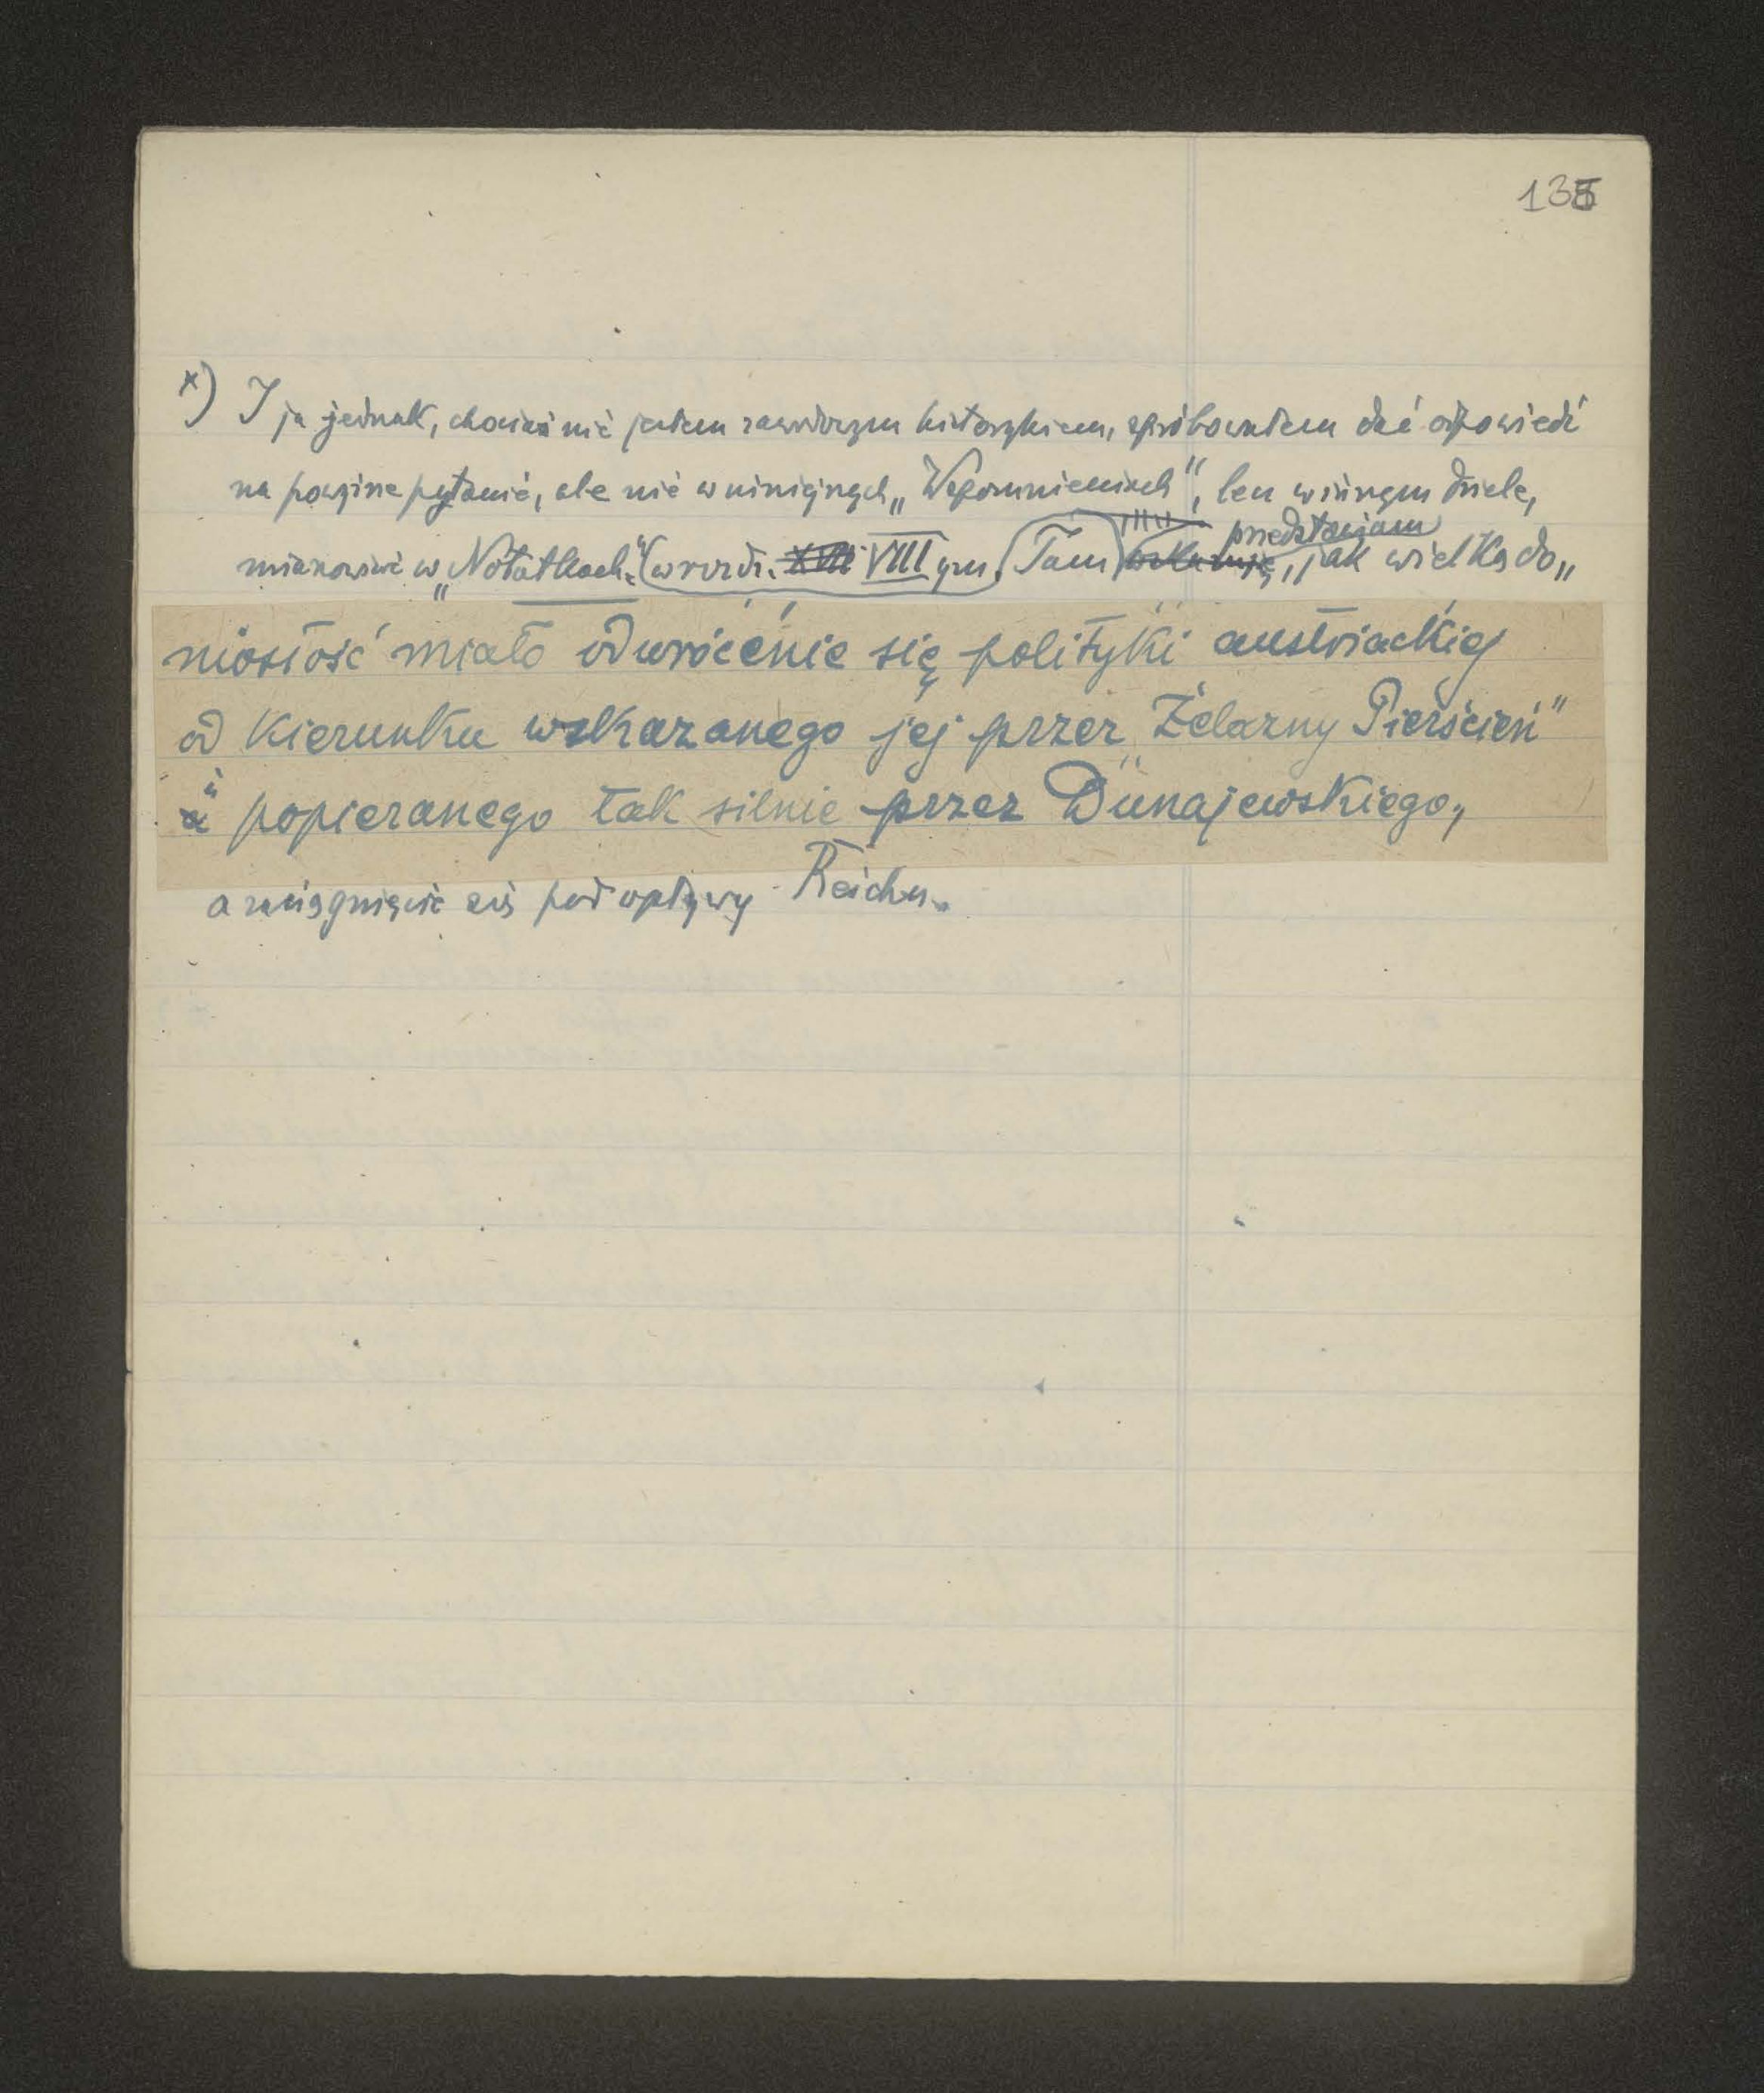 135
x) I ja jednak, chociaż nie jestem zawodowym historykiem, spróbowałem dać odpowiedź
na powyższe pytanie, ale nie w niniejszych „Wspomnieniach", lecz w innym dziele,
mianowicie w „Notatkach" (w rozdz. XVII VIII ym. Tam wskazuję, przedstawiam jak wielką do„
niosłość miało odwrócenie się polityki austriackiej
od kierunku wskazanego jej przez „Żelazny Pierścień"
a i popieranego tak silnie przez Dunajewskiego,
a zaciągnięcie się pod wpływy Reichu.